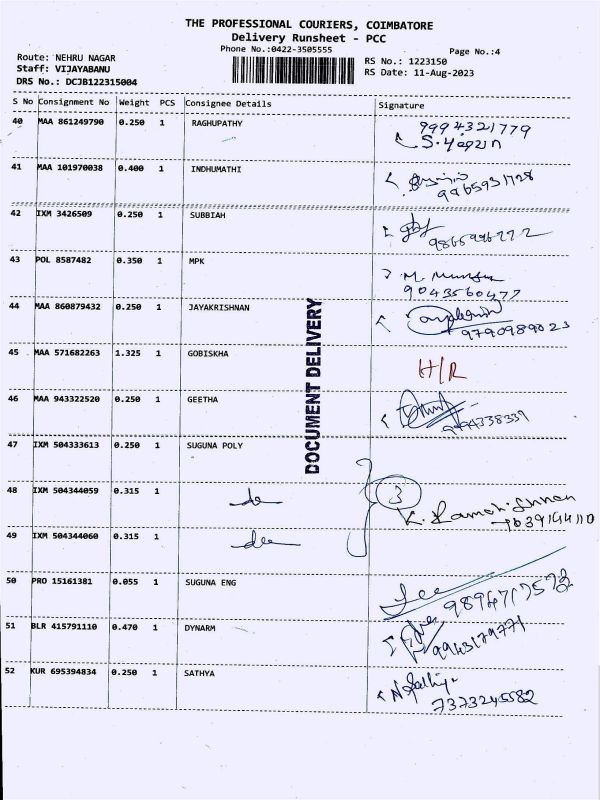 THE PROFESSIONAL COURIERS, COIMBATORE
Delivery Runsheet - PCC
Phone No.:0422-3505555
Page No.:4
Route: NEHRU NAGAR
RS No.: 1223150
Staff: VIJAYABANU
RS Date: 11-Aug-2023
DRS No.: DCJB122315004
S No Consignment No Weight PCS Consignee Details Signature
40 MAA 861249790 0.250 1 RAGHUPATHY 9994321779
41 MAA 101970038 0.400 1 INDHUMATHI
9965931728
42 IXM 3426509 0.250 1 SUBBIAH
43 POL 8587482 0.350 1 MPK M.
9043560477
44 MAA 860879432 0.250 1 JAYAKRISHNAN
9790989023
45 MAA 571682263 1.325 1 GOBISKHA H/R
46 MAA 943322520 0.250 1 GEETHA
47 IXM 504333613 0.250 1 SUGUNA POLY
48 IXM 504344059 0.315 1 do 3
49 IXM 504344060 0.315 1 do
50 PRO 15161381 0.055 1 SUGUNA ENG
51 BLR 415791110 0.470 1 DYNARM
9943179771
52 KUR 695394834 0.250 1 SATHYA
7373245582
DOCUMENT DELIVERY